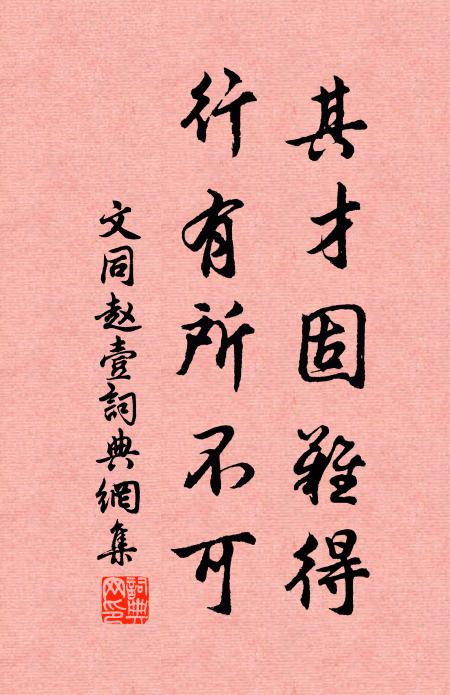 其才固難得
行有所不可
文同赵壹詞典網集
詞典網印